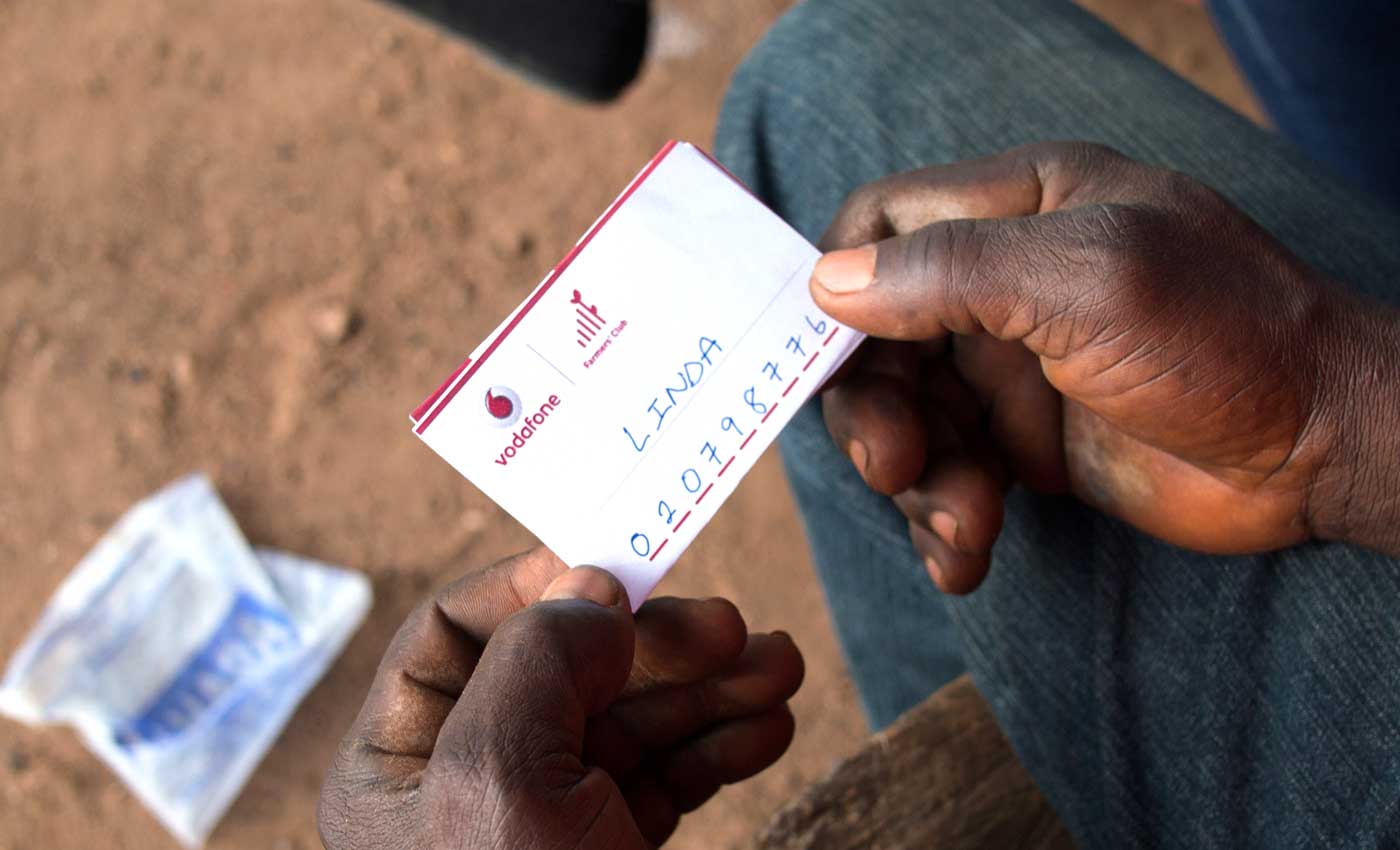 vodafone
Farmers' Club
LINDA
0 2 0 7 9 8 7 7 6